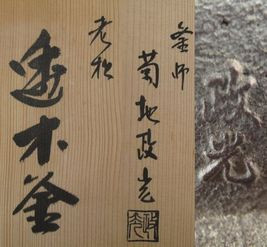 釜師
菊地政光
老松
透木釜
政光